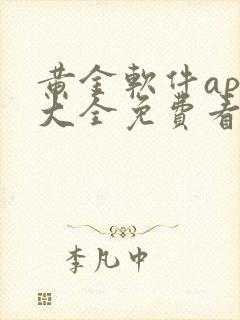 黄金軟件ap
大全免費看
李凡中